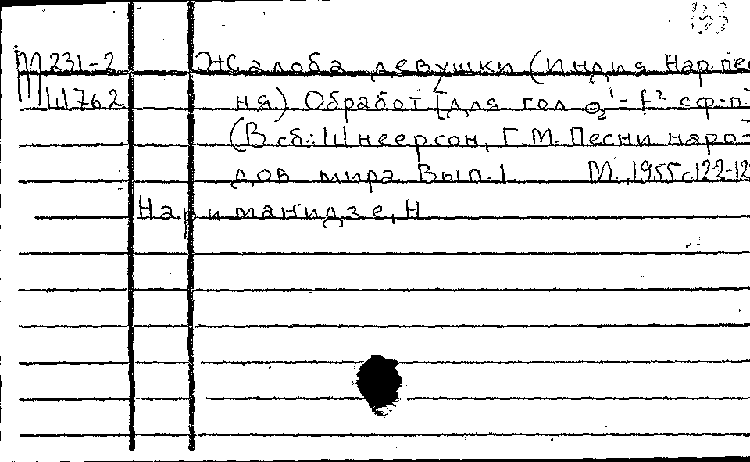 М231-2 Жалоба девушки (Индия Нар пе
Ш762 ня) Обработ [для гол
(В сб.: Шнеерсон, Г.М. Песни наро-
дов мира Вып.1 М., 1955 с 122-12
Нариманидзе, Н